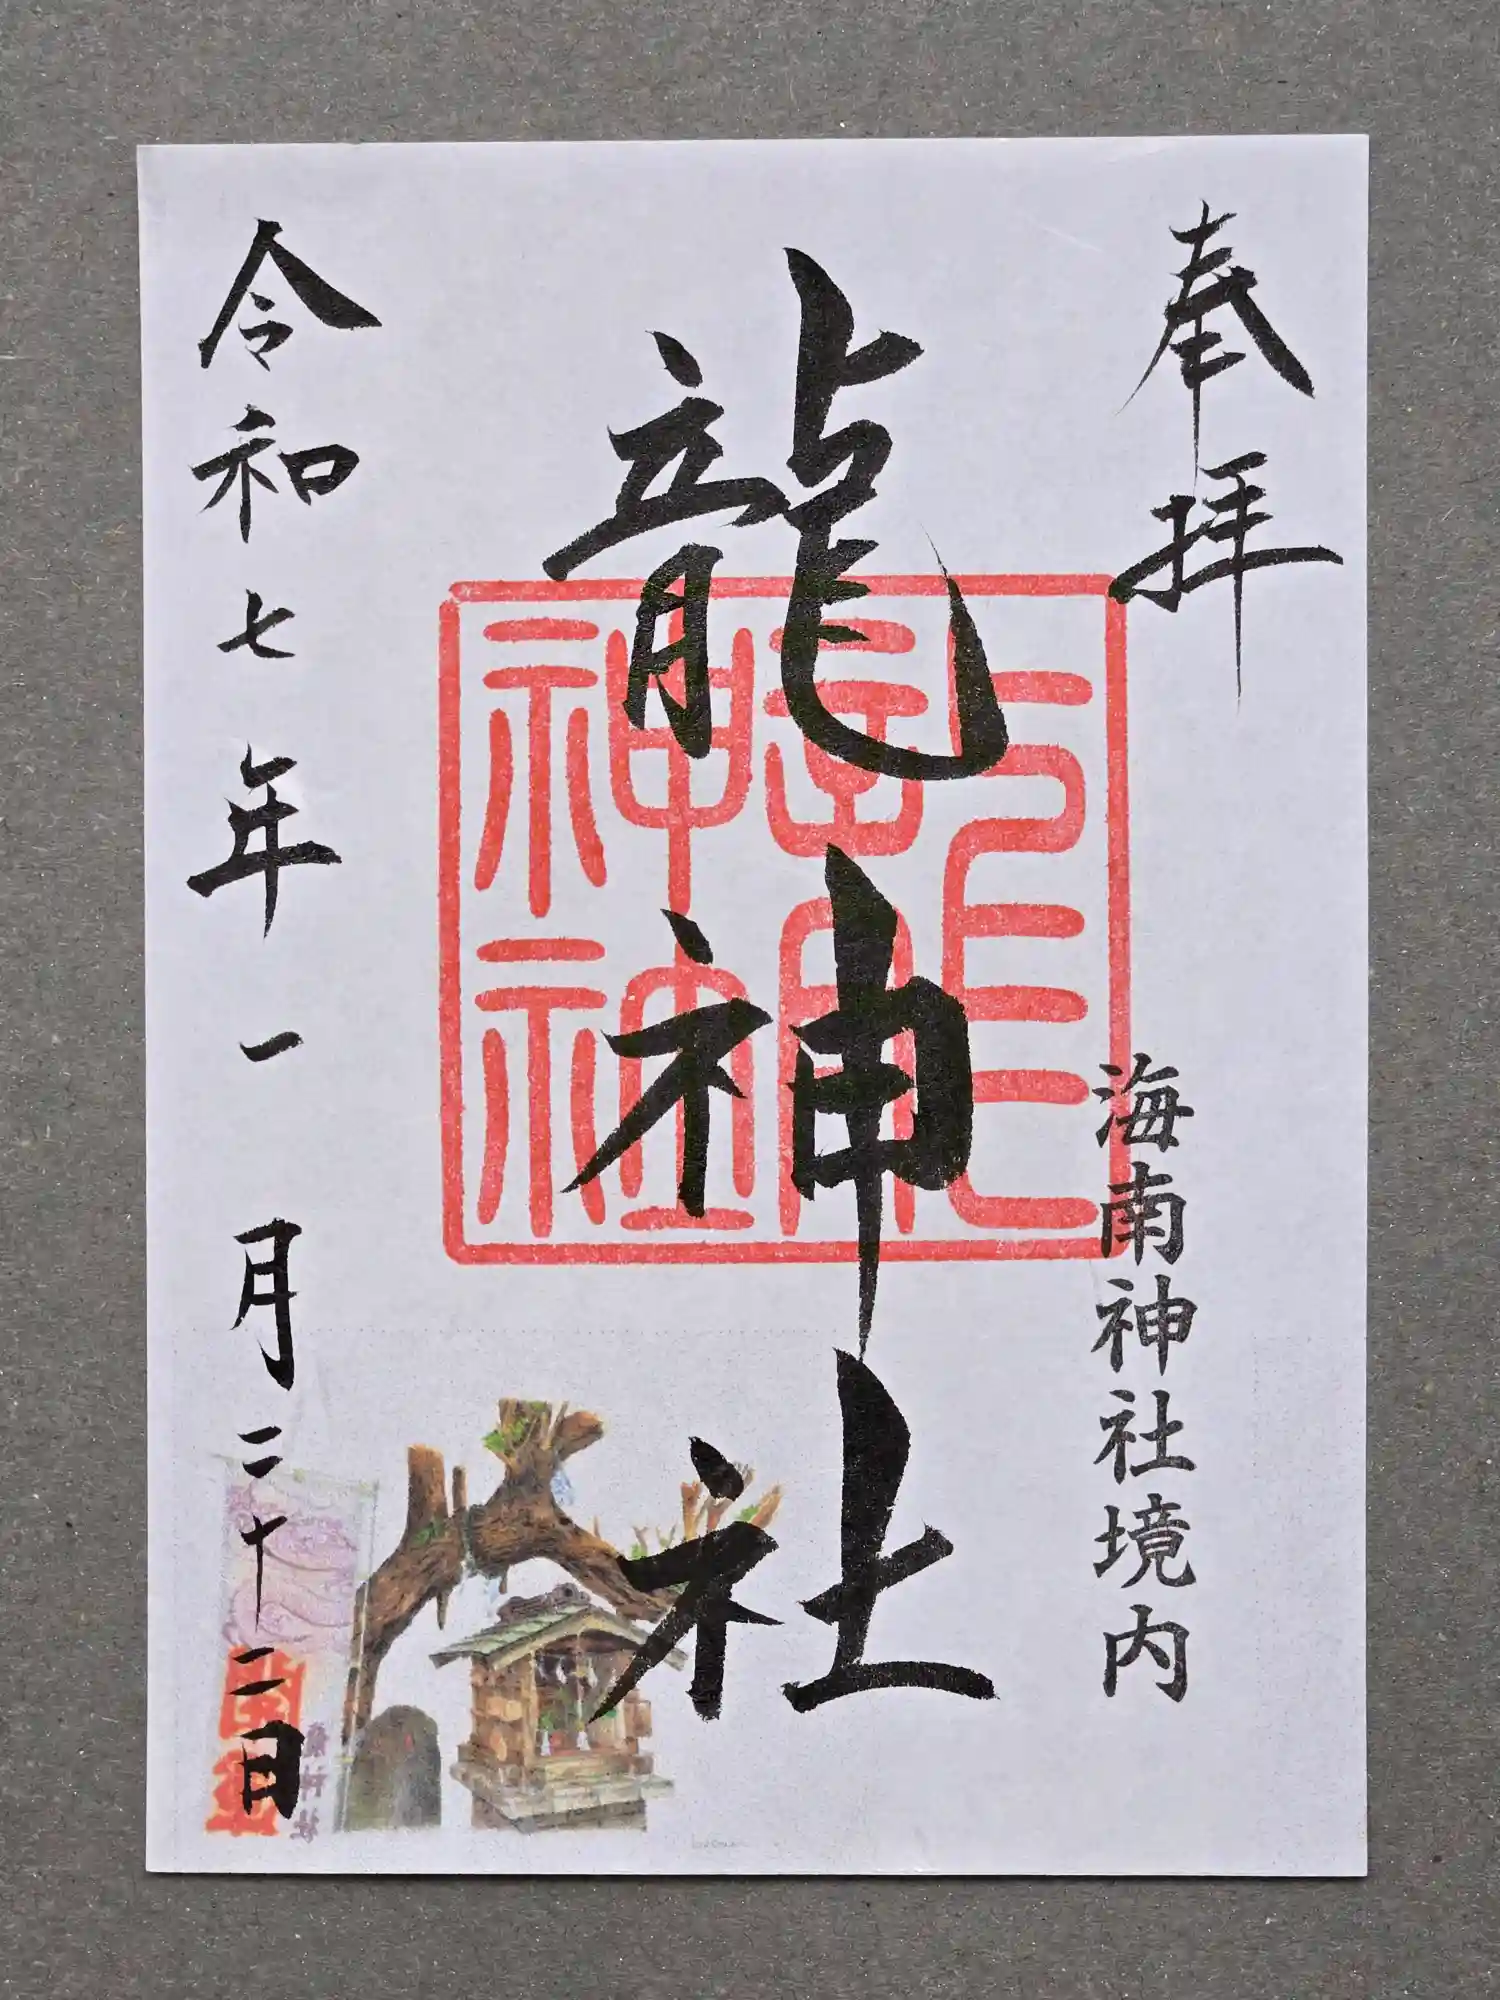 奉拝
海南神社境内
龍神社
龍神社
令和七年一月二十二日